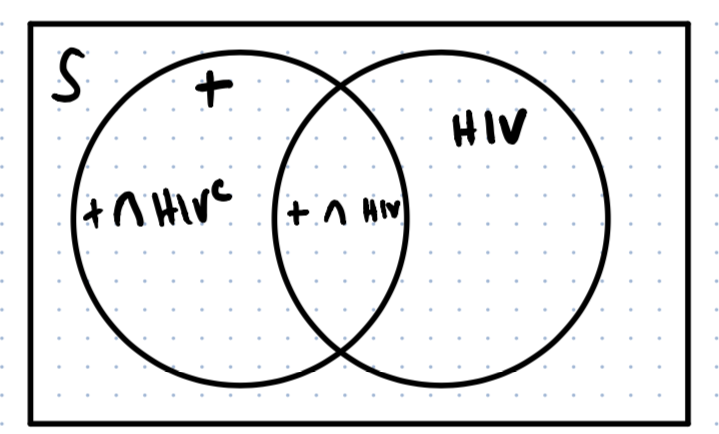 S
+
HIV
+ ∩ HIVᶜ
+ ∩ HIV